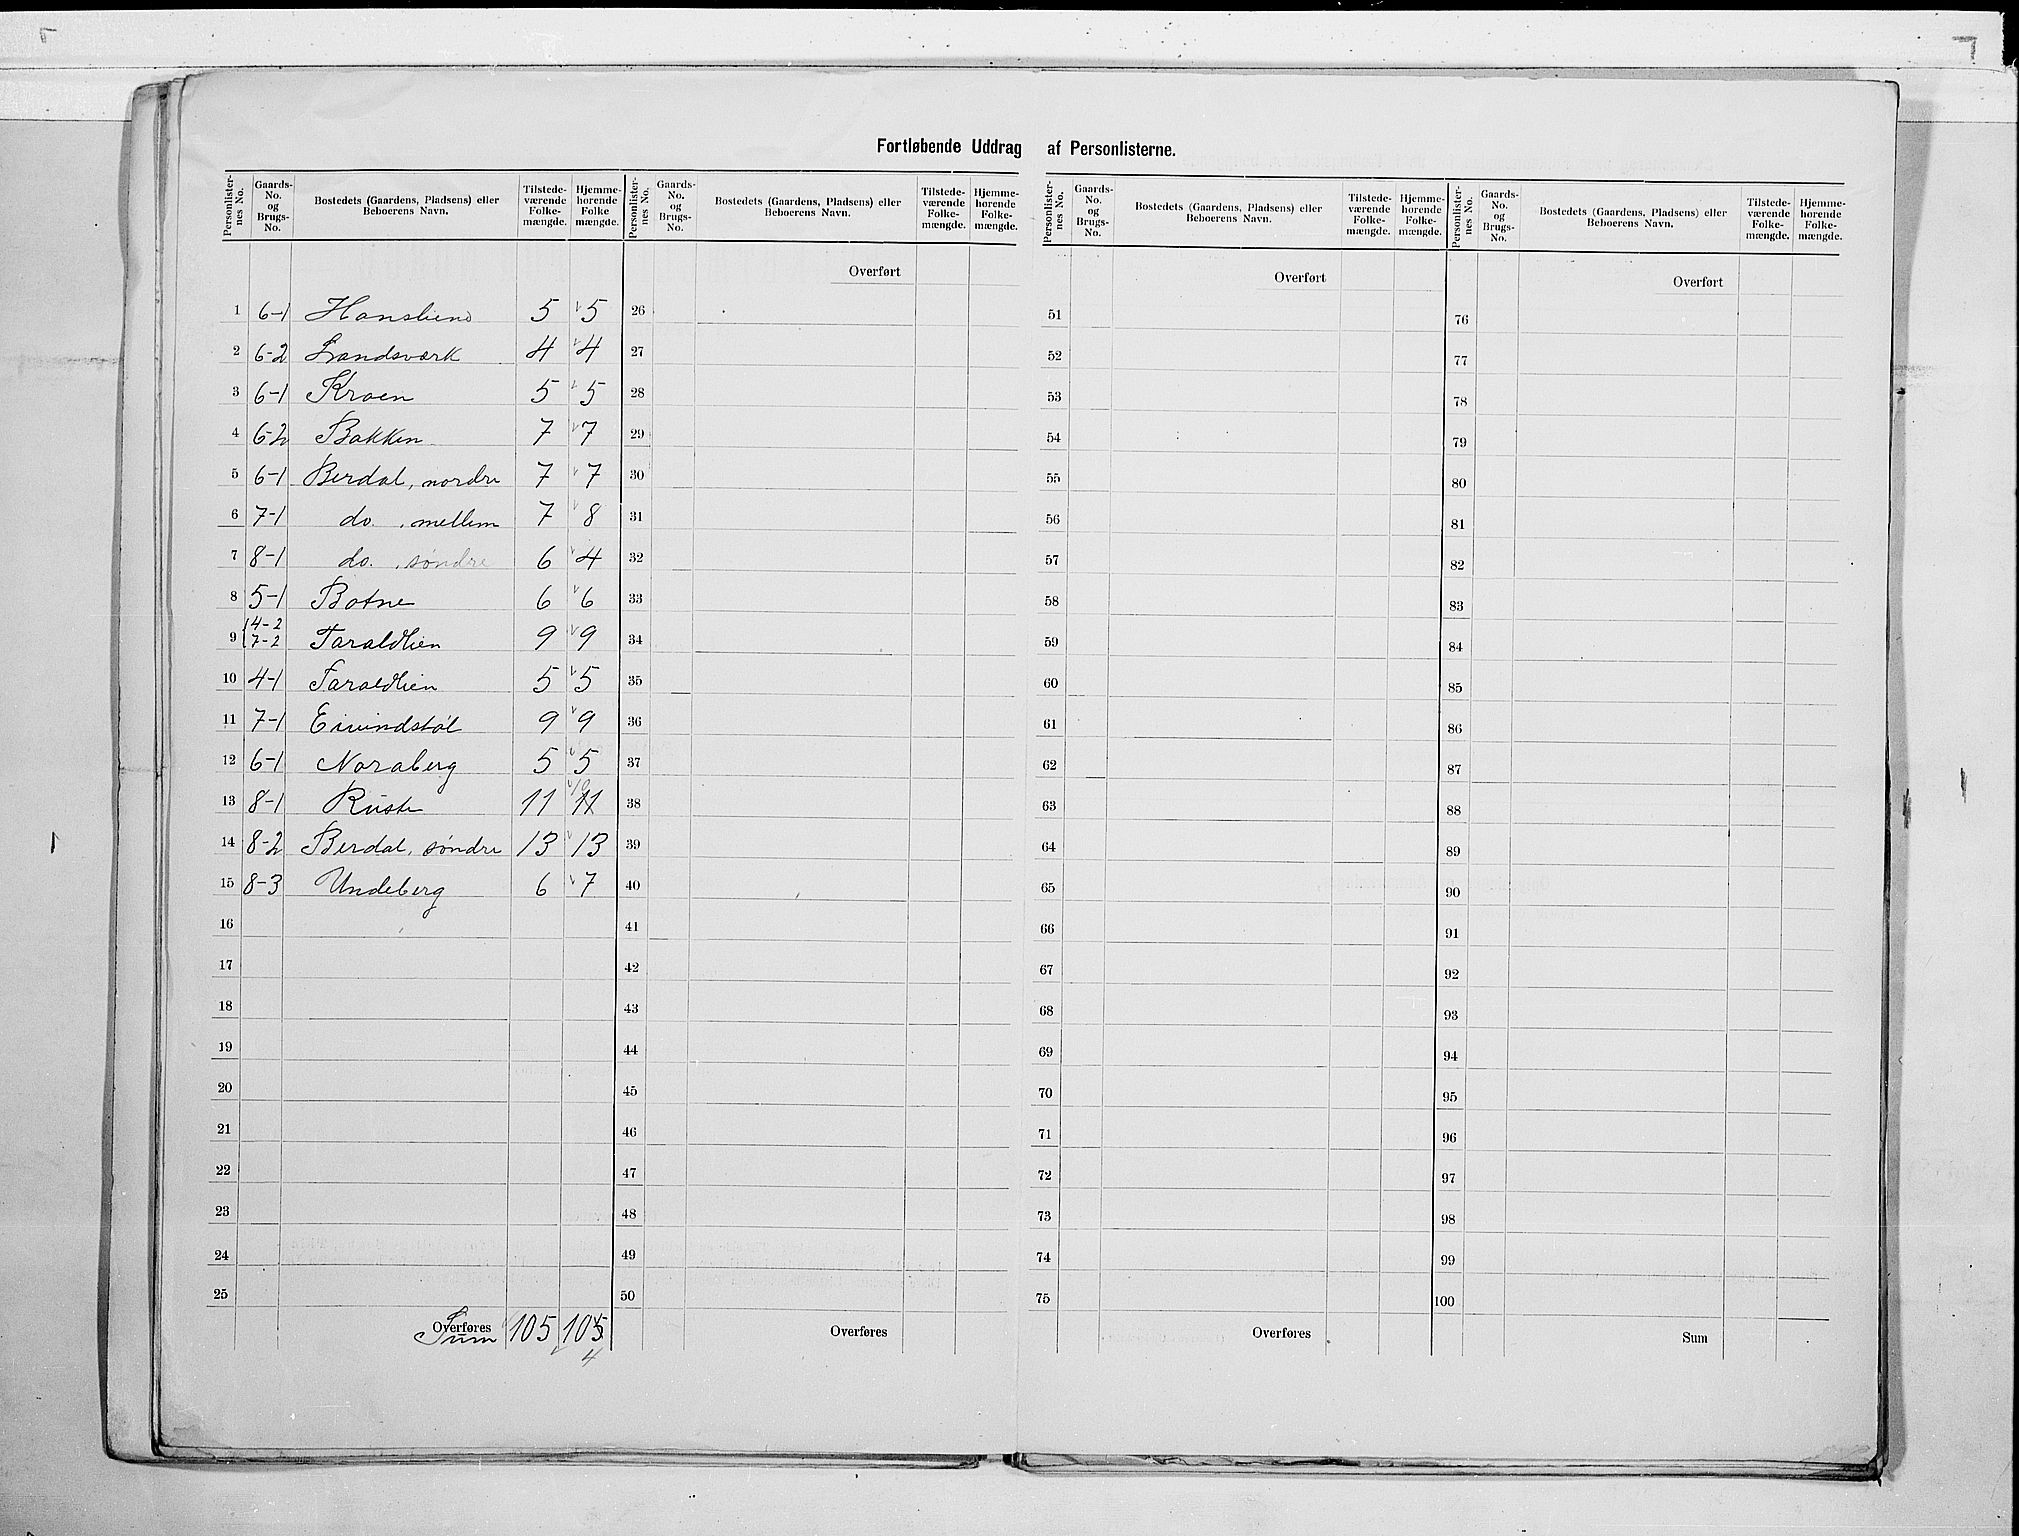 Fortløbende Uddrag af Personlisterne.
Personlister-nes No. | Gaards-No. og Brugs-No. | Bostedets (Gaardens, Pladsens) eller Beboerens Navn. | Tilstede-værende Folke-mængde. | Hjemme-hørende Folke mængde.
1 6-1 Hanslieno 5 5
2 6-2 Landsværk 4 4
3 6-1 Kroen 5 5
4 6-2 Bakken 7 7
5 6-1 Berdal, nordre 7 7
6 7-1 do. , mellem 7 8
7 8-1 do. , søndre 6 4
8 5-1 Botne 6 6
9 4-2 7-2 Taraldlien 9 9
10 4-1 Taraldlien 5 5
11 7-1 Eivindstøl 9 9
12 6-1 Noraberg 5 5
13 8-1 Ruste 11 11 10
14 8-2 Berdal, søndre 13 13
15 8-3 Undeberg 6 7
16
17
18
19
20
21
22
23
24
25
Overføres
Sum 105 105
4
Personlister-nes No. | Gaards-No. og Brugs-No. | Bostedets (Gaardens, Pladsens) eller Beboerens Navn. | Tilstede-værende Folke-mængde. | Hjemme-hørende Folke-mængde.
Overført
26
27
28
29
30
31
32
33
34
35
36
37
38
39
40
41
42
43
44
45
46
47
48
49
50
Overføres
Personlister-nes No. | Gaards-No. og Brugs-No. | Bostedets (Gaardens, Pladsens) eller Beboerens Navn. | Tilstede-værende Folke-mængde. | Hjemme-hørende Folke-mængde.
Overført
51
52
53
54
55
56
57
58
59
60
61
62
63
64
65
66
67
68
69
70
71
72
73
74
75
Overføres
Personlister-nes No. | Gaards-No. og Brugs-No. | Bostedets (Gaardens, Pladsens) eller Beboerens Navn. | Tilstede-værende Folke-mængde. | Hjemme-hørende Folke-mængde.
Overført
76
77
78
79
80
81
82
83
84
85
86
87
88
89
90
91
92
93
94
95
96
97
98
99
100
Sum